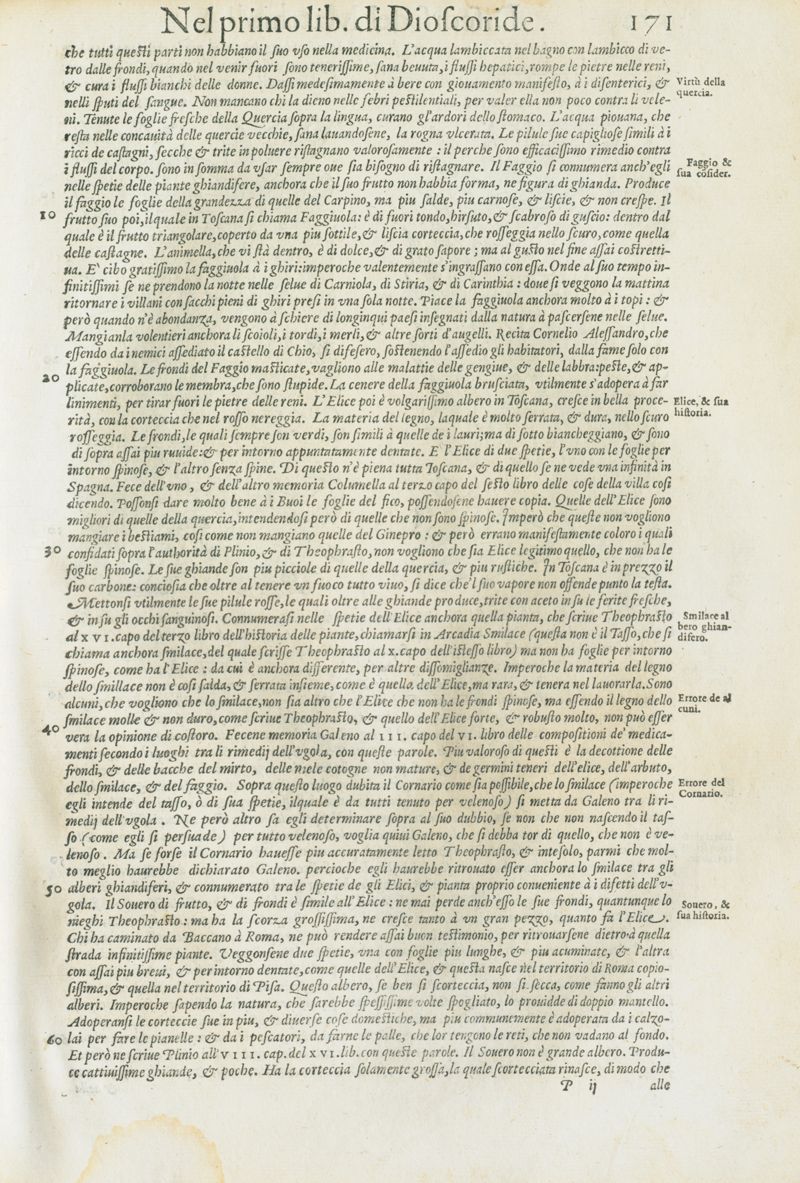 Nel primo lib. di Dioſcoride. 171
che tutti queſti parti non habbiano il ſuo vſo nella medicina. L'acqua lambiccata nel bagno con lambicco di ve-
tro dalle frondi, quando nel venir fuori ſono teneriſſime, ſana beuuta, i fluſſi hepatici, rompe le pietre nelle reni,
& cura i fluſſi bianchi delle donne. Daſſi medeſimamente à bere con giouamento manifeſto, à i diſenterici, &
Virtù della
quercia.
nelli ſputi del ſangue. Non mancano chi la dieno nelle febri peſtilentiali, per valer ella non poco contra li vele-
ni. Tenute le foglie freſche della Quercia ſopra la lingua, curano gl'ardori dello ſtomaco. L'acqua piouana, che
reſta nelle concauità delle quercie vecchie, ſana lauandoſene, la rogna vlcerata. Le pilule ſue capiglioſe ſimili à i
ricci de caſtagni, ſecche & trite in poluere riſtagnano valoroſamente : il perche ſono efficaciſſimo rimedio contra
i fluſſi del corpo. ſono in ſomma da vſar ſempre oue ſia biſogno di riſtagnare. Il Faggio ſi connumera anch'egli
Faggio &
ſua cõſider.
nelle ſpetie delle piante ghiandifere, anchora che il ſuo frutto non habbia forma, ne figura di ghianda. Produce
il faggio le foglie della grandezza di quelle del Carpino, ma piu ſalde, piu carnoſe, & liſcie, & non creſpe. Il
10 frutto ſuo poi, ilquale in Toſcana ſi chiama Faggiuola: è di fuori tondo, hirſuto, & ſcabroſo di guſcio: dentro dal
quale è il frutto triangolare, coperto da vna piu ſottile, & liſcia corteccia, che roſſeggia nello ſcuro, come quella
delle caſtagne. L'animella, che vi ſtà dentro, è di dolce, & di grato ſapore ; ma al guſto nel fine aſſai coſtretti-
ua. E' cibo gratiſſimo la faggiuola à i ghiri: imperoche valentemente s'ingraſſano con eſſa. Onde al ſuo tempo in-
finitiſſimi ſe ne prendono la notte nelle ſelue di Carniola, di Stiria, & di Carinthia : doue ſi veggono la mattina
ritornare i villani con ſacchi pieni di ghiri preſi in vna ſola notte. Piace la faggiuola anchora molto à i topi : &
però quando n'è abondanza, vengono à ſchiere di longinqui paeſi inſegnati dalla natura à paſcerſene nelle ſelue.
Mangianla volentieri anchora li ſcoioli, i tordi, i merli, & altre ſorti d'augelli. Recita Cornelio Aleſſandro, che
eſſendo da inemici aſſediato il caſtello di Chio, ſi difeſero, ſoſtenendo l'aſſedio gli habitatori, dalla fame ſolo con
la faggiuola. Le frondi del Faggio maſticate, vagliono alle malattie delle gengiue, & delle labbra: peſte, & ap-
20 plicate, corroborano le membra, che ſono ſtupide. La cenere della faggiuola bruſciata, vtilmente s'adopera à far
linimenti, per tirar fuori le pietre delle reni. L'Elice poi è volgariſſimo albero in Toſcana, creſce in bella proce-
Elice, & ſua
hiſtoria.
rità, con la corteccia che nel roſſo nereggia. La materia del legno, laquale è molto ſerrata, & dura, nello ſcuro
roſſeggia. Le frondi, le quali ſempre ſon verdi, ſon ſimili à quelle de i lauri; ma di ſotto biancheggiano, & ſono
di ſopra aſſai piu ruuide: & per intorno appuntatamente dentate. E l'Elice di due ſpetie, l'vno con le foglie per
intorno ſpinoſe, & l'altro ſenza ſpine. Di queſto n'è piena tutta Toſcana, & di quello ſe ne vede vna infinità in
Spagna. Fece dell'vno, & dell'altro memoria Columella al terzo capo del ſeſto libro delle coſe della villa coſi
dicendo. Poſſonſi dare molto bene à i Buoi le foglie del fico, poſſendoſene hauere copia. Quelle dell'Elice ſono
migliori di quelle della quercia, intendendoſi però di quelle che non ſono ſpinoſe. Imperò che queſte non vogliono
mangiare i beſtiami, coſi come non mangiano quelle del Ginepro : & però errano manifeſtamente coloro i quali
30 confidati ſopra l'authorità di Plinio, & di Theophraſto, non vogliono che ſia Elice legitimo quello, che non ha le
foglie ſpinoſe. Le ſue ghiande ſon piu picciole di quelle della quercia, & piu ruſtiche. In Toſcana è in prezzo il
ſuo carbone: concioſia che oltre al tenere vn fuoco tutto viuo, ſi dice che'l ſuo vapore non offende punto la teſta.
Mettonſi vtilmente le ſue pilule roſſe, le quali oltre alle ghiande produce, trite con aceto in ſu le ferite freſche,
& in ſu gli occhi ſanguinoſi. Connumeraſi nelle ſpetie dell'Elice anchora quella pianta, che ſcriue Theophraſto
Smilace al
bero ghian-
difero.
al XVI. capo del terzo libro dell'hiſtoria delle piante, chiamarſi in Arcadia Smilace (queſta non è il Taſſo, che ſi
chiama anchora ſmilace, del quale ſcriſſe Theophraſto al x. capo dell'iſteſſo libro) ma non ha foglie per intorno
ſpinoſe, come ha l'Elice : da cui è anchora differente, per altre diſſomiglianze. Imperoche la materia del legno
dello ſmillace non è coſi ſalda, & ſerrata inſieme, come è quella dell'Elice, ma rara, & tenera nel lauorarla. Sono
alcuni, che vogliono che lo ſmilace, non ſia altro che l'Elice che non ha le frondi ſpinoſe, ma eſſendo il legno dello
Errore de al
cuni.
ſmilace molle & non duro, come ſcriue Theophraſto, & quello dell'Elice forte, & robuſto molto, non può eſſer
40 vera la opinione di coſtoro. Fecene memoria Galeno al III. capo del VI. libro delle compoſitioni de' medica-
menti ſecondo i luoghi tra li rimedij dell'vgola, con queſte parole. Piu valoroſo di queſti è la decottione delle
frondi, & delle bacche del mirto, delle mele cotogne non mature, & de germini teneri dell'elice, dell'arbuto,
dello ſmilace, & del faggio. Sopra queſto luogo dubita il Cornario come ſia poſſibile, che lo ſmilace (imperoche
Errore del
Cornario.
egli intende del taſſo, ò di ſua ſpetie, ilquale è da tutti tenuto per velenoſo) ſi metta da Galeno tra li ri-
medij dell'vgola . Ne però altro ſa egli determinare ſopra al ſuo dubbio, ſe non che non naſcendo il taſ-
ſo (come egli ſi perſuade) per tutto velenoſo, voglia quiui Galeno, che ſi debba tor di quello, che non è ve-
lenoſo . Ma ſe forſe il Cornario haueſſe piu accuratamente letto Theophraſto, & inteſolo, parmi che mol-
to meglio haurebbe dichiarato Galeno. percioche egli haurebbe ritrouato eſſer anchora lo ſmilace tra gli
50 alberi ghiandiferi, & connumerato tra le ſpetie de gli Elici, & pianta proprio conueniente à i difetti dell'v-
gola. Il Souero di frutto, & di frondi è ſimile all'Elice : ne mai perde anch'eſſo le ſue frondi, quantunque lo
Souero, &
ſua hiſtoria.
nieghi Theophraſto: ma ha la ſcorza groſſiſſima, ne creſce tanto à vn gran pezzo, quanto fa l'Elice.
Chi ha caminato da Baccano à Roma, ne può rendere aſſai buon teſtimonio, per ritrouarſene dietro à quella
ſtrada infinitiſſime piante. Veggonſene due ſpetie, vna con foglie piu lunghe, & piu acuminate, & l'altra
con aſſai piu breui, & per intorno dentate, come quelle dell'Elice, & queſta naſce nel territorio di Roma copio-
ſiſſima, & quella nel territorio di Piſa. Queſto albero, ſe ben ſi ſcorteccia, non ſi ſecca, come fanno gli altri
alberi. Imperoche ſapendo la natura, che ſarebbe ſpeſſiſſime volte ſpogliato, lo prouidde di doppio mantello.
Adoperanſi le corteccie ſue in piu, & diuerſe coſe domeſtiche, ma piu communemente è adoperata da i calzo-
60 lai per fare le pianelle : & da i peſcatori, da farne le palle, che lor tengono le reti, che non vadano al fondo.
Et però ne ſcriue Plinio all'VIII. cap. del XVI. lib. con queſte parole. Il Souero non è grande albero. Produ-
ce cattiuiſſime ghiande, & poche. Ha la corteccia ſolamente groſſa, la quale ſcortecciata rinaſce, di modo che
P ij alle